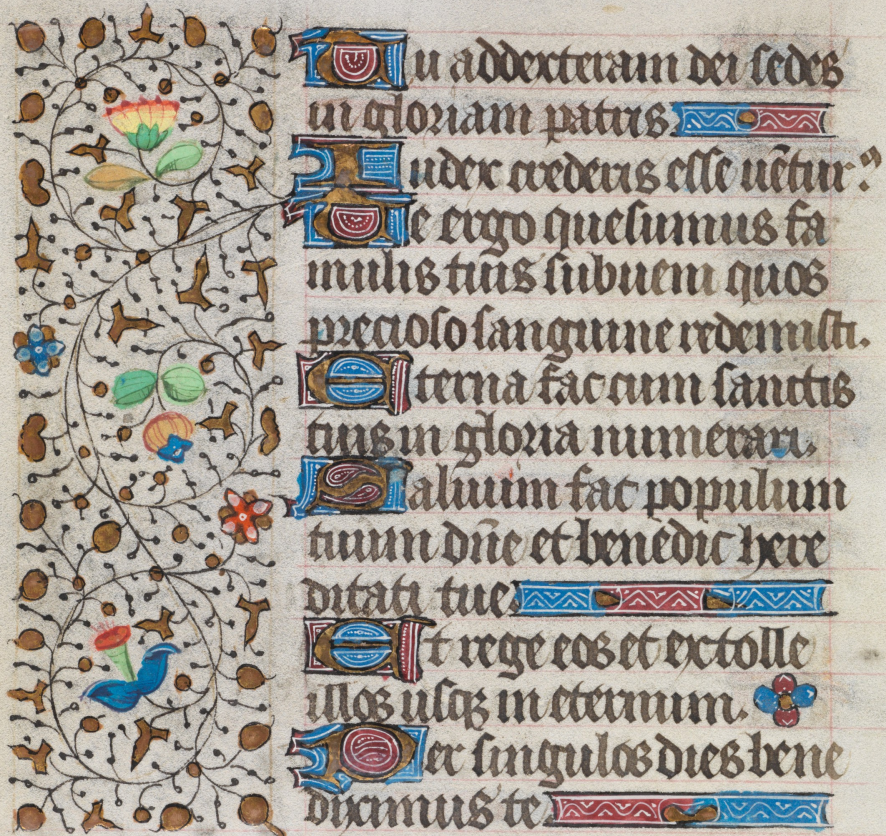 Tu addexteram dei sedes
in gloriam patris.
Iudex crederis esse uētur:
Te ergo quesumus fa
mulis tuis subueni quos
precioso sanguine redemisti.
Eterna fac cum sanctis
tuis in gloria numerari.
Saluum fac populum
tuum dn̄e et benedic here
ditati tue.
Et rege eos et extolle
illos usqꝫ in eternum.
Per singulos dies bene
dicimus te.